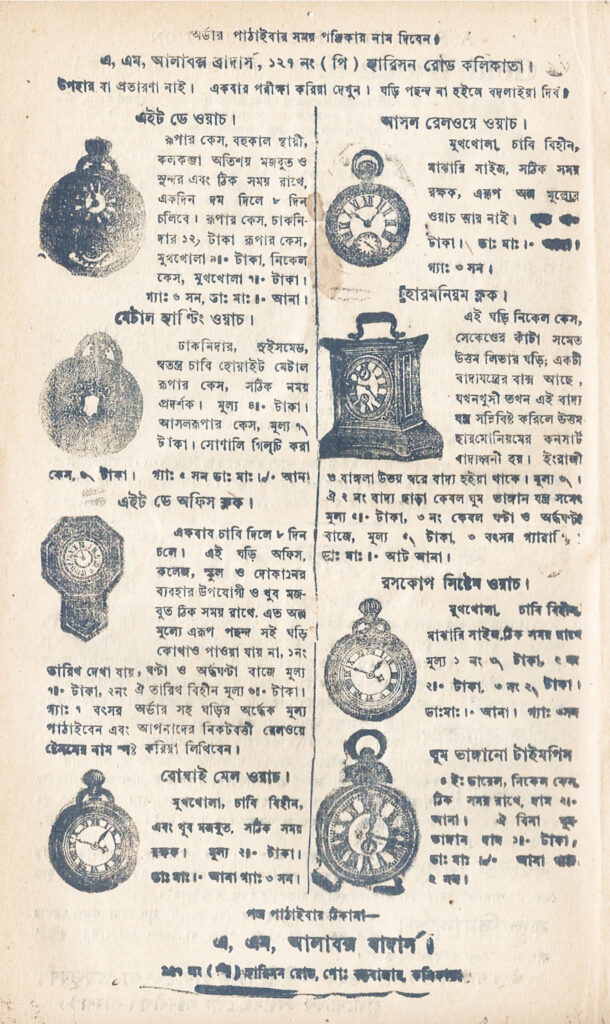 অর্ডার পাঠাইবার সময় পঞ্জিকার নাম দিবেন।
এ, এম, আলাবক্স ব্রাদার্স, ১২৭ নং ( পি ) হ্যারিসন রোড কলিকাতা।
উপহার বা প্রতারণা নাই। একবার পরীক্ষা করিয়া দেখুন। ঘড়ি পছন্দ না হইলে বদলাইয়া দিব।
এইট ডে ওয়াচ।
রূপার কেস, বহুকাল স্থায়ী,
কলকব্জা অতিশয় মজবুত ও
সুন্দর এবং ঠিক সময় রাখে,
একদিন দম দিলে ৮ দিন
চলিবে। রূপার কেস, ঢাকনি-
দার ১২, টাকা রূপার কেস,
মুখখোলা ৯॥০ টাকা, নিকেল
কেস, মুখখোলা ৭॥০ টাকা।
গ্যাঃ ৬ সন, ডাঃ মাঃ ।০ আনা।
মেটাল হাণ্টিং ওয়াচ।
ঢাকনিদার, হুইসমেড,
স্বতন্ত্র চাবি হোয়াইট মেটাল
রূপার কেস, সঠিক সময়
প্রদর্শক। মূল্য ৪॥০ টাকা।
আসলরূপার কেস, মূল্য ৭৲
টাকা। সোণালি গিল্টি করা
কেস, টাকা। গ্যাঃ ৫ সন ডাঃ মাঃ ।৵০ আনা
এইট ডে অফিস ক্লক।
একবার চাবি দিলে ৮ দিন
চলে। এই ঘড়ি অফিস,
কলেজ, স্কুল ও দোকানের
ব্যবহার উপযোগী ও খুব মজ-
বুত ঠিক সময় রাখে, এত অল্প
মূল্যে এরূপ পছন্দ সই ঘড়ি
কোথাও পাওয়া যায় না, ১নং
তারিখ দেখা যায়, ঘণ্টা ও অর্দ্ধঘণ্টা বাজে মূল্য
৭॥০ টাকা, ২নং ঐ তারিখ বিহীন মূল্য ৬॥০ টাকা।
গ্যাঃ ৭ বৎসর অর্ডার সহ ঘড়ির অর্দ্ধেক মূল্য
পাঠাইবেন এবং আপনাদের নিকটবর্ত্তী রেলওয়ে
ষ্টেসনের নাম স্পষ্ট করিয়া লিখিবেন।
বোম্বাই মেল ওয়াচ।
মুখখোলা, চাবি বিহীন,
এবং খুব মজবুত, সঠিক সময়
রক্ষক। মূল্য ২॥০ টাকা।
ডাঃ মাঃ।০ আনা গ্যাঃ ৩ সন।
আসল রেলওয়ে ওয়াচ।
মুখখোলা, চাবি বিহীন,
মাঝারি সাইজ, সঠিক সময়
রক্ষক, এরূপ অল্প মূল্যের
ওয়াচ আর নাই।
টাকা। ডাঃ মাঃ।০
গ্যাঃ ৩ সন।
হারমনিয়ম ক্লক।
এই ঘড়ি নিকেল কেস,
সেকেণ্ডের কাঁটা সমেত
উত্তম লিভার ঘড়ি; একটী
বাদ্যযন্ত্রের বাক্স আছে,
যখনখুসী তখন এই বাদ্য
যন্ত্র সন্নিবিষ্ট করিলে উত্তম
হারমোনিয়মের কনসার্ট
বাদ্যধ্বনী হয়। ইংরাজী
ও বাঙ্গলা উভয় স্বরে বাদ্য হইয়া থাকে। মূল্য
ঐ ২ নং বাদ্য ছাড়া কেবল ঘুম ভাঙ্গান যন্ত্র সমেত
মূল্য টাকা, ৩ নং কেবল ঘণ্টা ও অর্দ্ধঘণ্টা
বাজে, মূল্য টাকা, ৩ বৎসর গ্যারান্টি,
ডাঃ মাঃ। আট আনা।
রসকোপ সিষ্টেম ওয়াচ।
মুখখোলা, চাবি বিহীন,
মাঝারি সাইজ, ঠিক সময় রাখে
মূল্য ১ নং টাকা, ২ নং
২॥০ টাকা, ৩ নং ২৲ টাকা।
ডাঃমাঃ।০ আনা। গ্যাঃ ৩সন
ঘুম ভাঙ্গানো টাইমপিস
৪ ইঃ ডায়েল, নিকেল কেস,
ঠিক সময় রাখে, দাম ২।০
আনা। ঐ বিনা ঘুম
ভাঙ্গান দাম ১॥০ টাকা,
ডাঃ মাঃ ।৵০ আনা গ্যাঃ
২ সন।
পত্র পাঠাইবার ঠিকানা—
এ, এম, আলাবক্স ব্রাদার্স।
১২৭ নং (পি) হ্যারিসন রোড, পোঃ বড়বাজার, কলিকাতা।